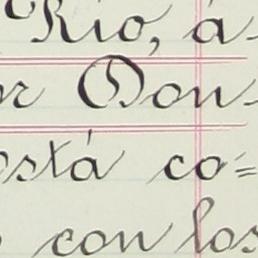 Rio, á-
or Don-
está co=
con los